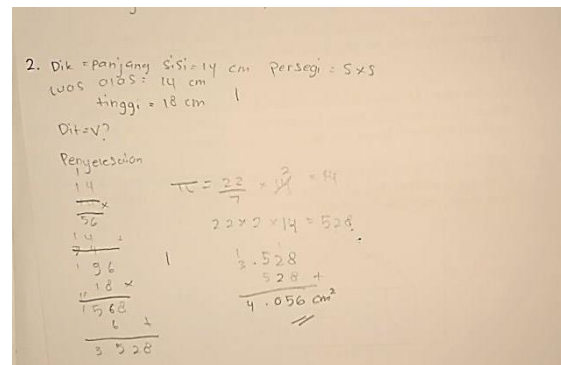 2. Dik = panjang sisi = 14 cm persegi = s x s
luas alas = 14 cm
tinggi = 18 cm
Dit = V?
Penyelesaian
14
x
56
14 +
196
18 x
1568
6 +
3528
π = 22/7 x 14 2 x 14
22 x 2 x 14 = 528
3.528
528 +
4.056 cm²